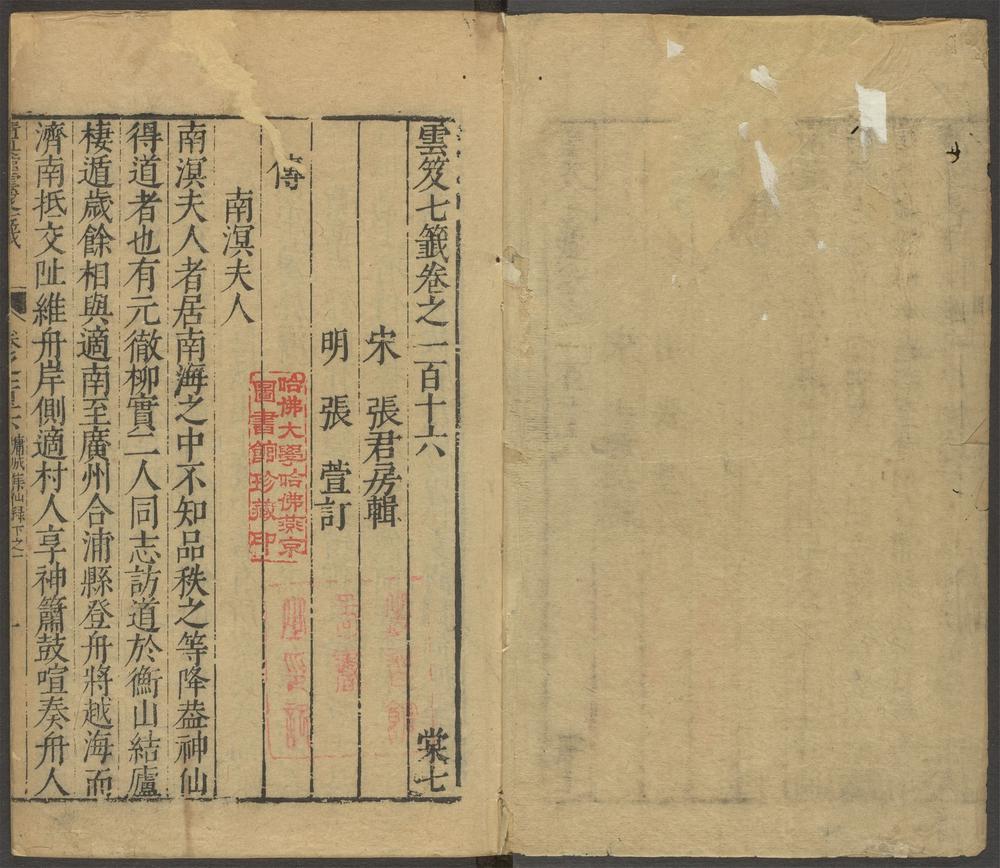 雲笈七籤卷之一百十六 棠七
宋 張君房輯
明 張萱訂
傳
南溟夫人
南溟夫人者居南海之中不知品秩之等降葢神仙
得道者也有元徹柳實二人同志訪道於衡山結廬
棲遁歲餘相與適南至廣州合浦縣登舟將越海而
濟南抵交阯維舟岸側適村人享神簫鼓喧奏舟人
哈佛大學哈佛燕京
圖書館珍藏印